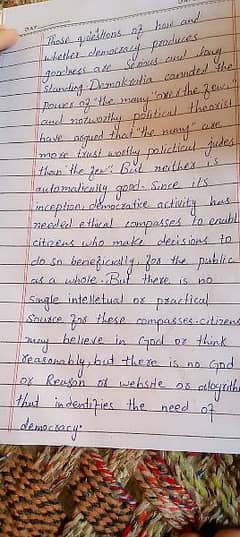 DATE
Those questions of how and
whether democracy produces
goodness are serious and long
standing. Demokratia carinded the
power of "the many" over the few"
and notworthy political theorist
have argued that "the many" are
more trust worthy polictical judes
than "the few". But neither is
automatically good. Since its
inception, democrative activity has
needed ethical compasses to enabl
citizens who make decisions to
do so beneficially for the public
as a whole. But there is no
single intelletual or practical
source for these compasses. citizens
may believe in God or think
reasonably, but there is no God
or Reason or website or alogrith
that indentifies the need of
democracy.